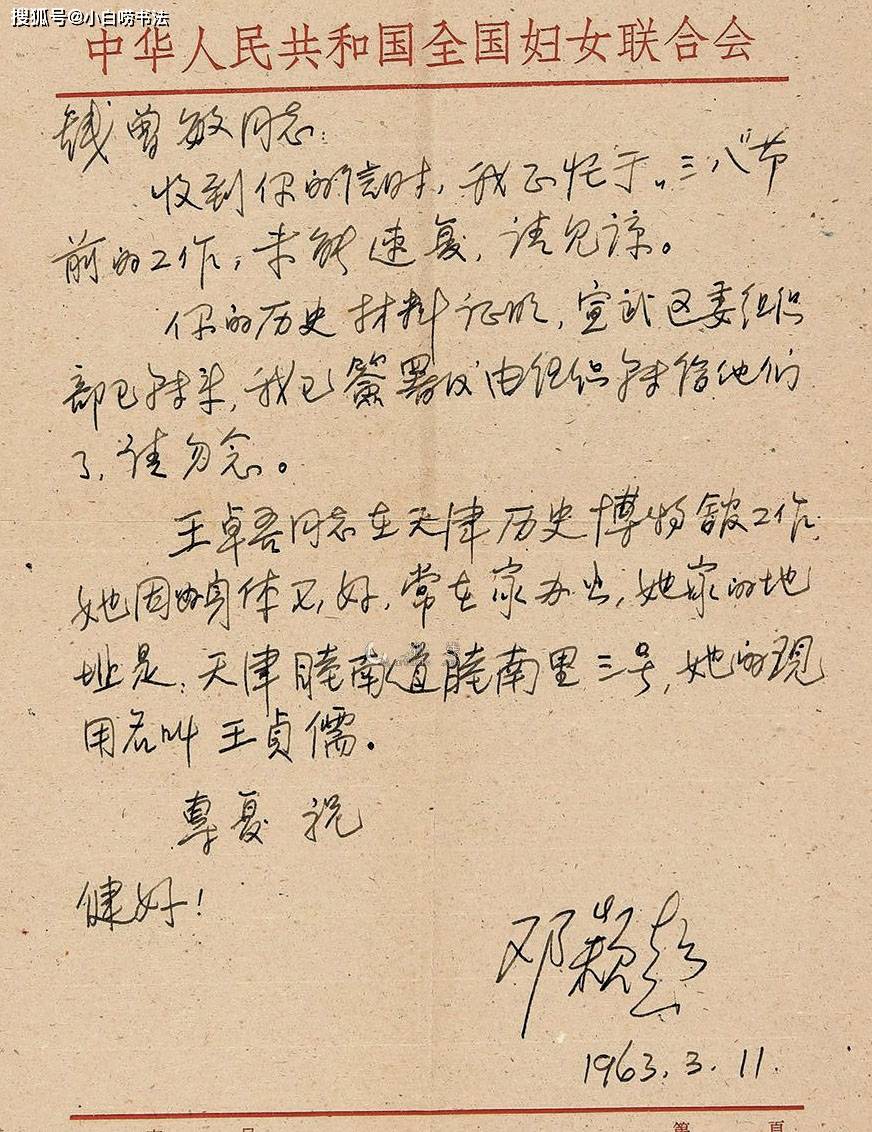 搜狐号@小白唠书法
中华人民共和国全国妇女联合会
钱曾敏同志：
收到你的信时，我正忙于“三八”节
前的工作，未能速复，请见谅。
你的历史材料证明，宣武区委组织
部已转来，我已签署仪由组织转给他们
了，请勿念。
王卓吾同志在天津历史博物馆工作
她因为身体不好，常在家办公，她家的地
址是：天津睦南道睦南里三号，她的现
用名叫王贞儒。
专复 祝
健好！
邓颖超
1963.3.11.
第 页